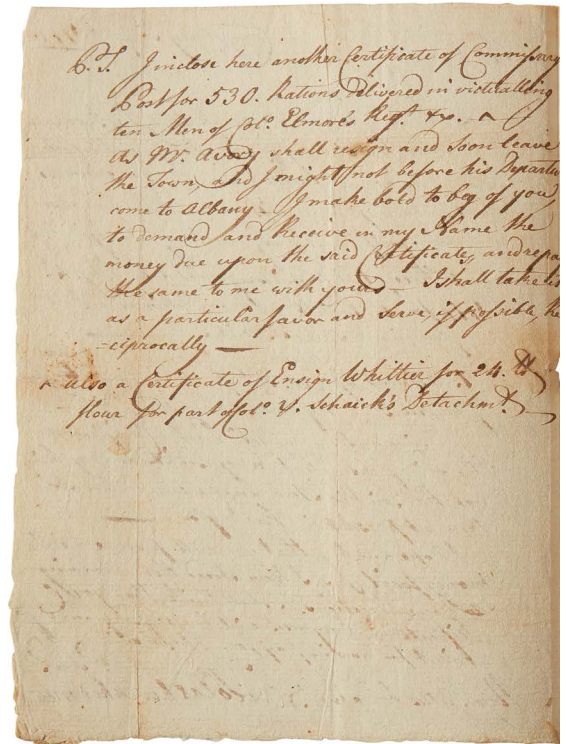 P.S. I inclose here another Certificate of Commissary
Post for 530. Rations delivered in victualling
ten Men of Colo. Elmore's Regt. &c. ^
As Mr. Avery shall resign and soon leave
the Town, and I might not before his Departu
come to Albany - I make bold to beg of you
to demand and Receive in my Name the
money due upon the said Certificate, and repa
the same to me with yours - I shall take
as a particular favor and serve, if possible, Re
=ciprocally —
^ also a Certificate of Ensign Whittier for 24. lb
flour for part of Colo. V. Schaick's Detachmt.